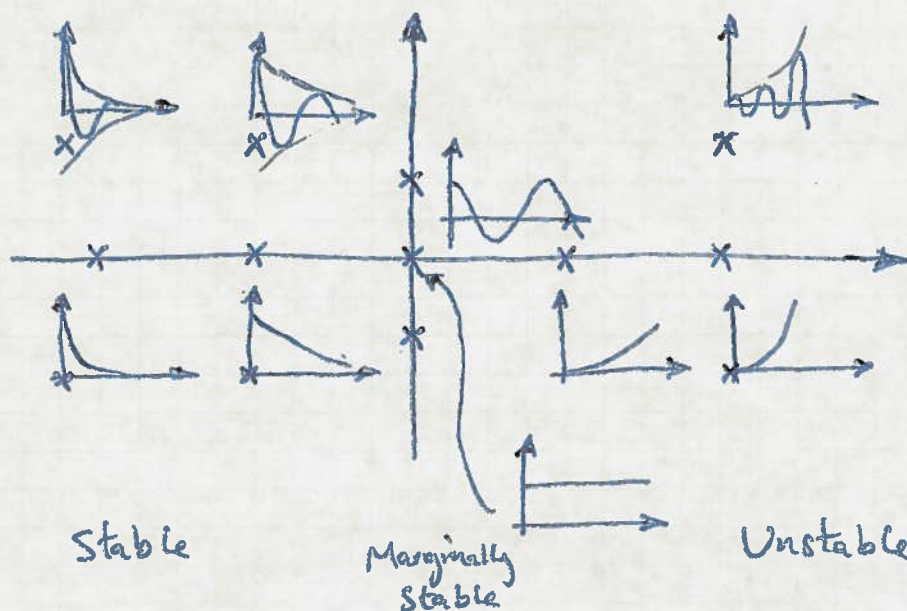 Stable
Marginally
Stable
Unstable